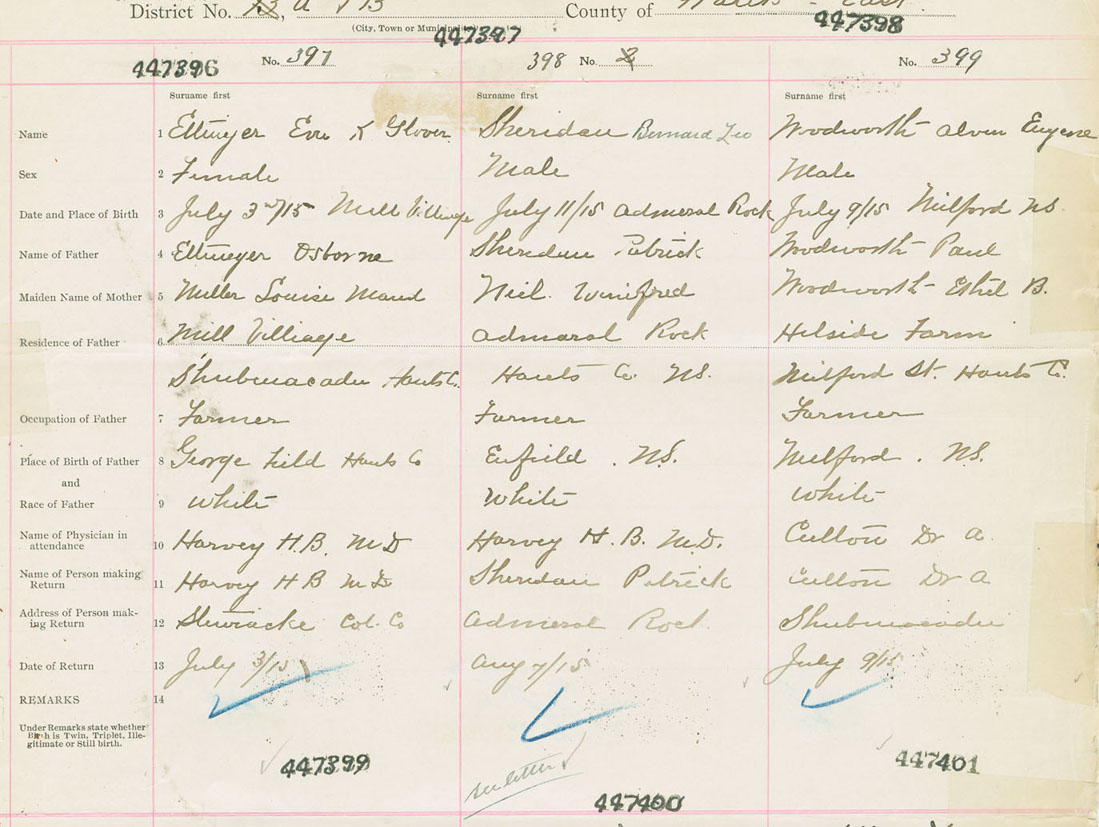 District No. 113 County of Hants - East
(City, Town or Municipality)
447396 447397 447398
No. 397 398 No. 2 No. 399
Surname first Surname first Surname first
Name 1 Ettinger K Glover Sheridan Bernard Leo Woodworth Alvin Eugene
Sex 2 Female Male Male
Date and Place of Birth 3 July 3rd/15 Mill Village July 11/15 Admeral Rock July 9/15 Milford NS.
Name of Father 4 Ettinger Osborne Sheridan Patrick Woodworth Paul
Maiden Name of Mother 5 Miller Louise Maud Niel. Winifred Woodworth Ethel B.
Residence of Father 6 Mill Villiage Admaral Rock Hilside Farm
Shubenacadie Hants C. Hants Co NS. Milford St. Hants Co.
Occupation of Father 7 Farmer Farmer Farmer
Place of Birth of Father 8 George Field Hants Co Enfield. NS. Milford. NS.
and
Race of Father 9 White White White
Name of Physician in
attendance 10 Harvey H.B. M.D Harvey H. B. M.D. Dr A.
Name of Person making
Return 11 Harvey H B M D Sheridan Patrick Dr A
Address of Person mak-
ing Return 12 Stewiacke Col. Co Admeral Rock Shubenacadie
Date of Return 13 July 3/15 Aug 7/15 July 9/15
REMARKS 14
Under Remarks state whether
Birth is Twin, Triplet, Ille-
gitimate or Still birth.
447399 447400 447401